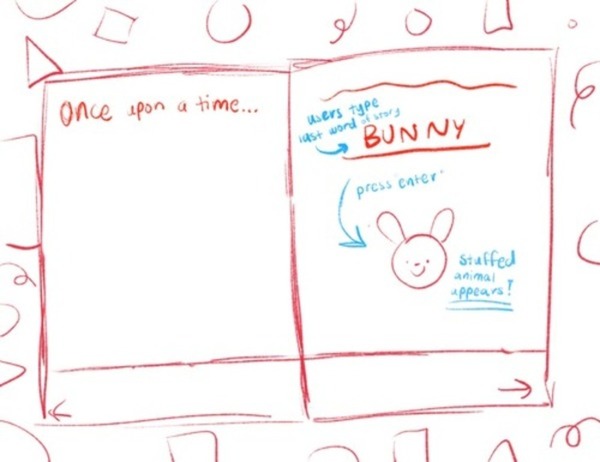 Once upon a time...
users type
last word of story
BUNNY
press "enter"
stuffed
animal
appears!